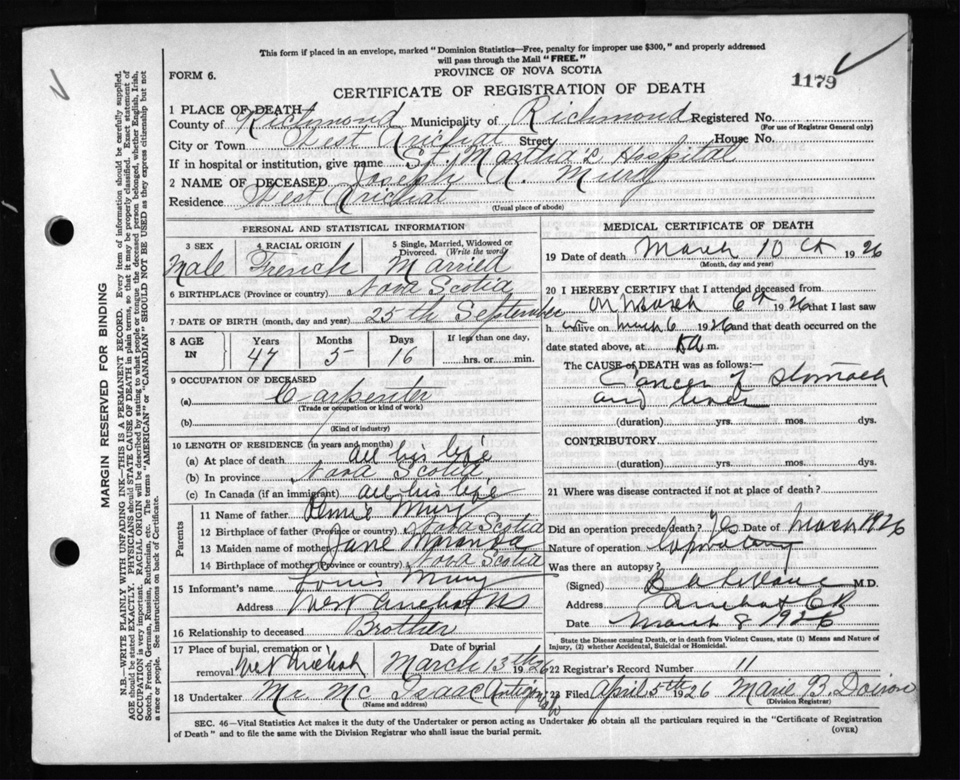 This form if placed in an envelope, marked "Dominion Statistics—Free, penalty for improper use $300," and properly addressed
will pass through the Mail "FREE."
FORM 6.
PROVINCE OF NOVA SCOTIA
1179
CERTIFICATE OF REGISTRATION OF DEATH
1 PLACE OF DEATH
County of Richmond Municipality of Richmond Registered No.
(For use of Registrar General only)
City or Town West Arichat Street House No.
If in hospital or institution, give name St. Martha's Hospital
2 NAME OF DECEASED Joseph A. Mury
Residence West Arichat
(Usual place of abode)
PERSONAL AND STATISTICAL INFORMATION
3 SEX Male
4 RACIAL ORIGIN French
5 Single, Married, Widowed or Divorced. (Write the word) Married
6 BIRTHPLACE (Province or country) Nova Scotia
7 DATE OF BIRTH (month, day and year) 25th September
8 AGE IN Years 47 Months 5 Days 16 If less than one day, hrs. or min.
9 OCCUPATION OF DECEASED
(a) Carpenter
(Trade or occupation or kind of work)
(b)
(Kind of industry)
10 LENGTH OF RESIDENCE (in years and months)
(a) At place of death all his life
(b) In province Nova Scotia
(c) In Canada (if an immigrant) all his life
Parents
11 Name of father Mury
12 Birthplace of father (Province or country) Nova Scotia
13 Maiden name of mother Jane
14 Birthplace of mother (Province or country) Nova Scotia
15 Informant's name Louis Mury
Address West Arichat NS
16 Relationship to deceased Brother
17 Place of burial, cremation or removal West Arichat
Date of burial March 13th 1926
18 Undertaker Mr. Mc Isaac Antigonish
(Name and address)
MEDICAL CERTIFICATE OF DEATH
19 Date of death March 10th 1926
(Month, day and year)
20 I HEREBY CERTIFY that I attended deceased from
on March 6th 1926 that I last saw
h im alive on march 6 1926 and that death occurred on the
date stated above, at m.
The CAUSE of DEATH was as follows:—
Cancer of stomach
and liver
(duration) yrs. mos. dys.
CONTRIBUTORY
(duration) yrs. mos. dys.
21 Where was disease contracted if not at place of death?
Did an operation precede death? Yes Date of March 1926
Nature of operation
Was there an autopsy?
(Signed) B A LeBlanc M.D.
Address Arichat CB
Date March 8 1926
State the Disease causing Death, or in death from Violent Causes, state (1) Means and Nature of
Injury, (2) whether Accidental, Suicidal or Homicidal.
22 Registrar's Record Number 11
23 Filed April 5th 1926 Marie B. Doiron
(Division Registrar)
SEC. 46—Vital Statistics Act makes it the duty of the Undertaker or person acting as Undertaker to obtain all the particulars required in the "Certificate of Registration
of Death" and to file the same with the Division Registrar who shall issue the burial permit.
(OVER)
MARGIN RESERVED FOR BINDING
N.B.—WRITE PLAINLY WITH UNFADING INK—THIS IS A PERMANENT RECORD. Every item of information should be carefully supplied.
AGE should be stated EXACTLY. PHYSICIANS should STATE CAUSE OF DEATH in plain terms, so that it may be properly classified. Exact statement of
OCCUPATION is very important. RACIAL ORIGIN will be described by stating to what people or tongue the deceased person belonged, whether English, Irish,
Scotch, French, German, Russian, Ruthenian, etc. The terms "AMERICAN" or "CANADIAN" SHOULD NOT BE USED as they express citizenship but not
a race or people. See instructions on back of Certificate.